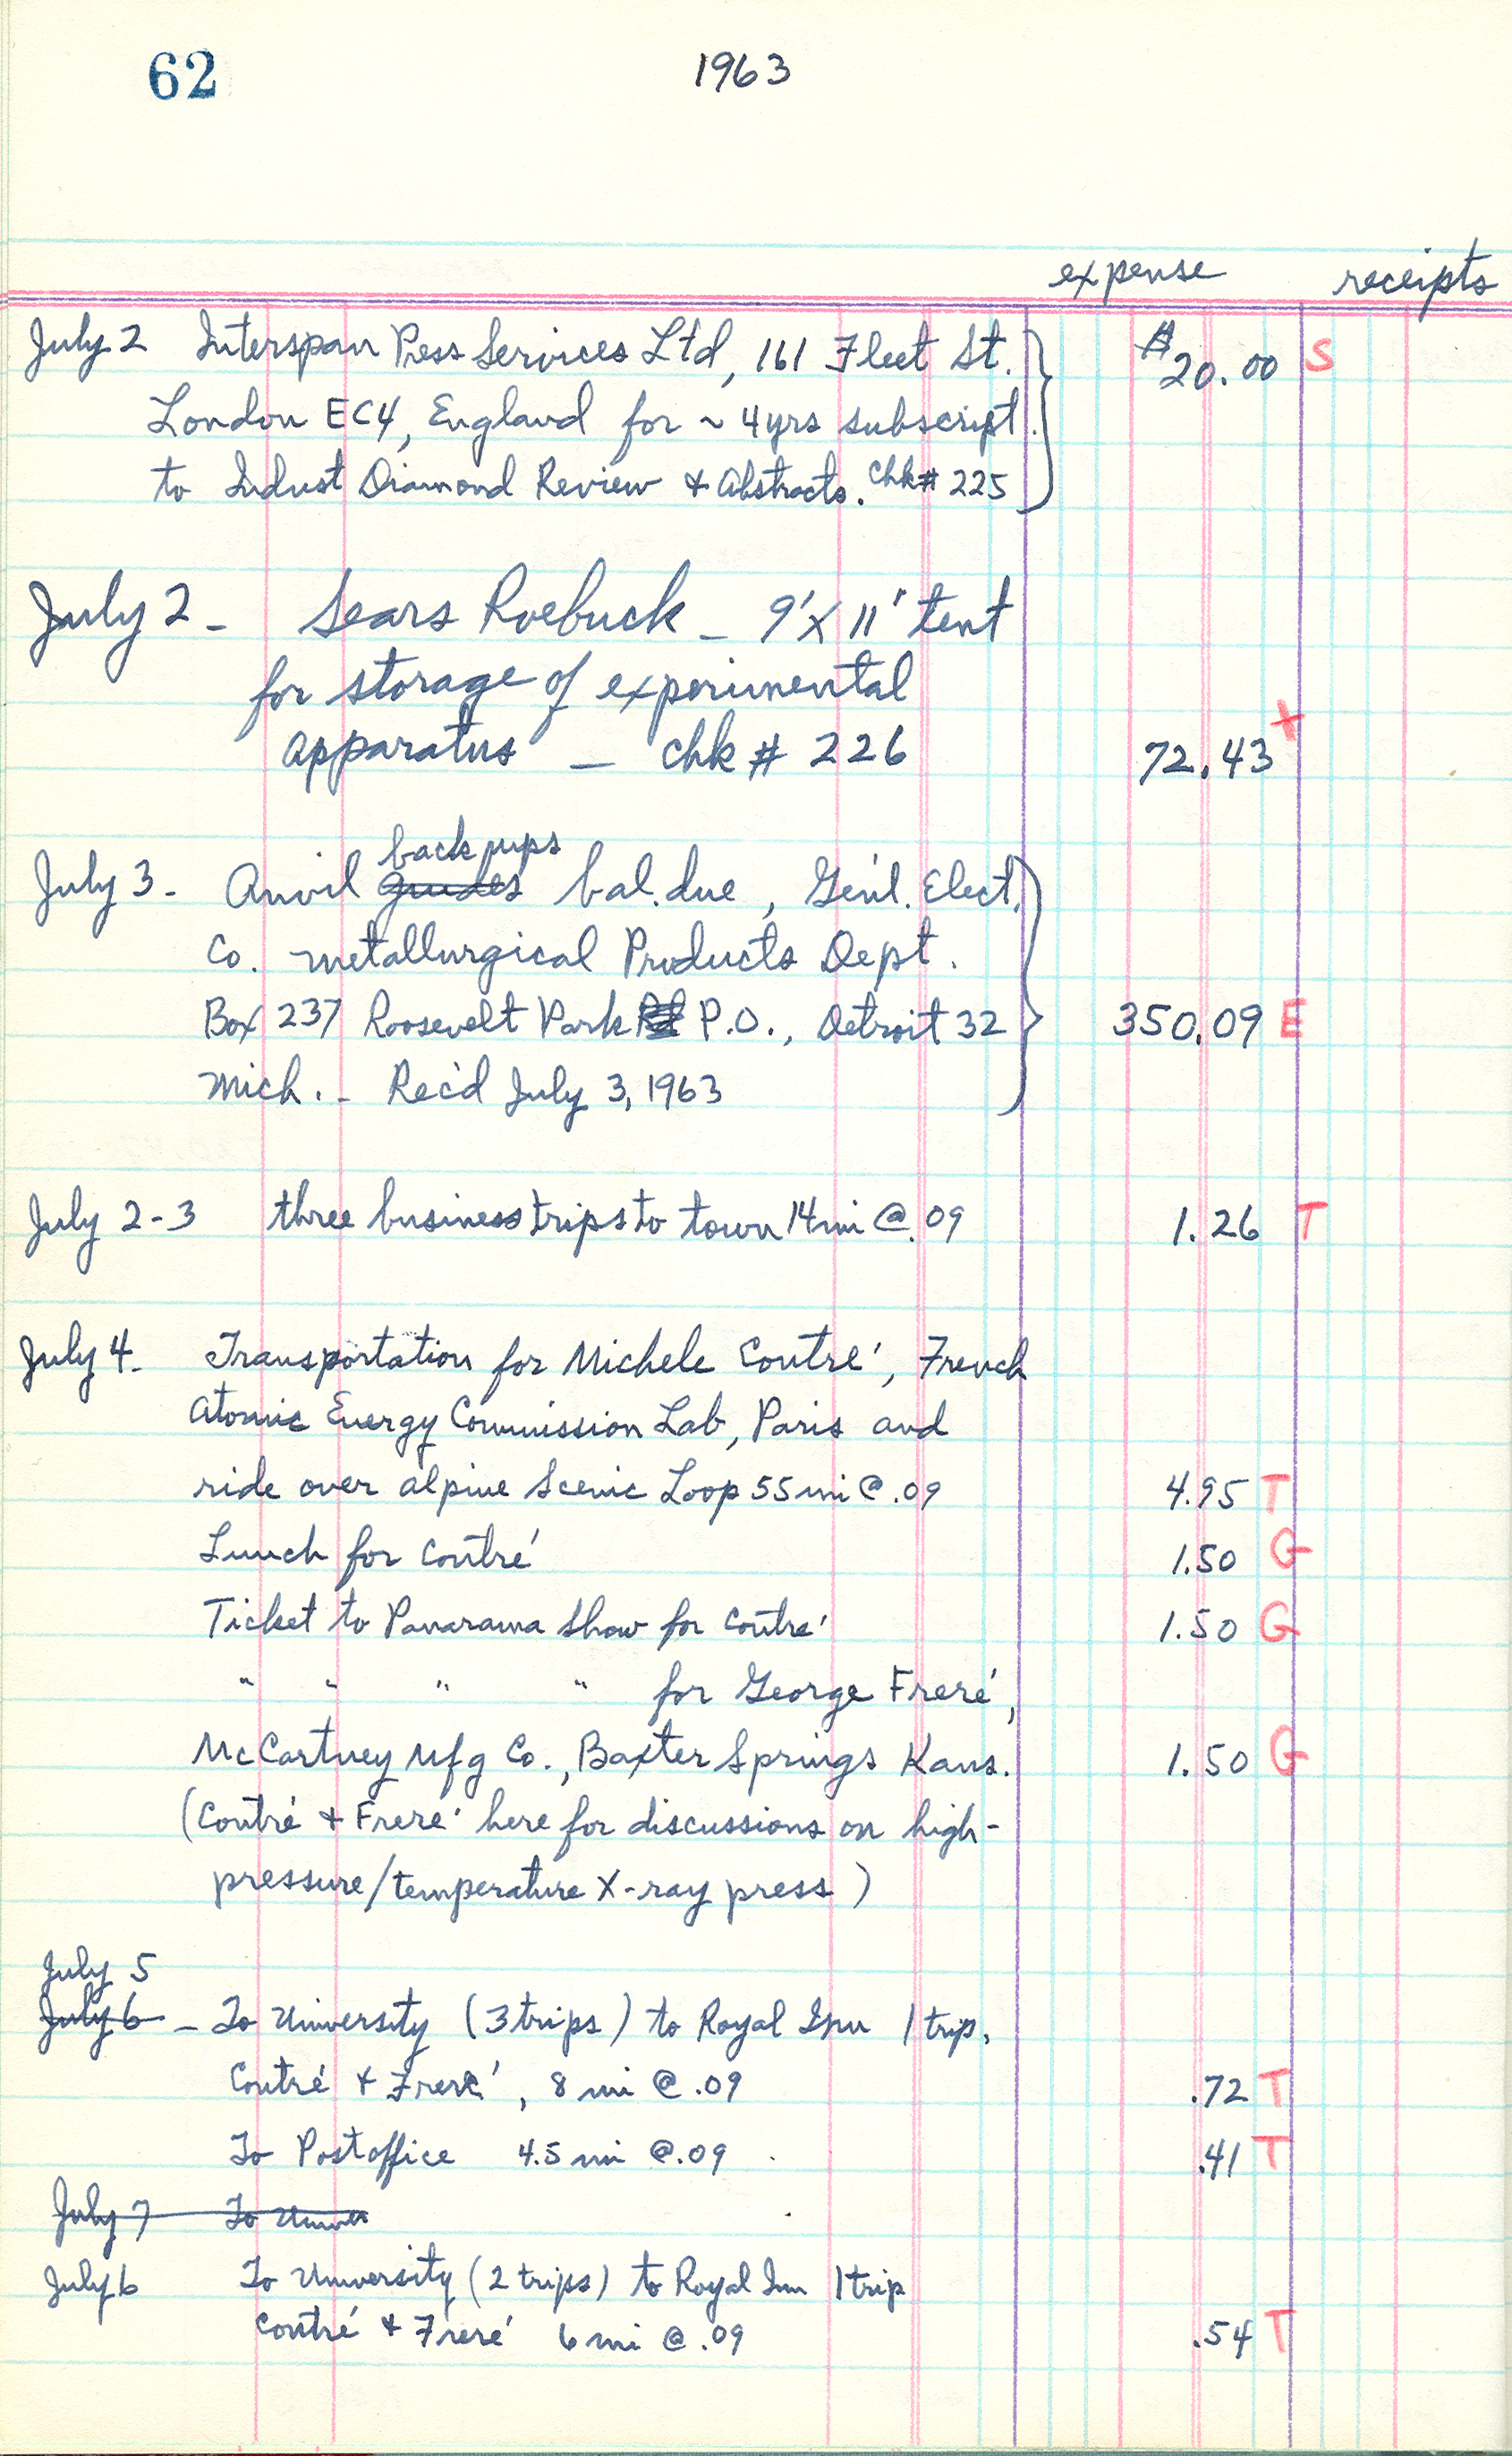 62
1963
expense receipts
July 2 Interspan Press Services Ltd, 161 Fleet St. $20.00 S
London EC4, England for ~ 4yrs subscript.
to Indust Diamond Review & Abstracts. Chk# 225
July 2 - Sears Roebuck - 9'X11' tent
for storage of experimental
apparatus - chk # 226 72.43 +
back ups
July 3 - Anvil guides bal. due, Gen'l. Elect.
Co. Metallurgical Products Dept.
Box 237 Roosevelt Park Rd P.O., Detroit 32 350.09 E
Mich. - Rec'd July 3, 1963
July 2-3 three business trips to town 14 mi @ .09 1.26 T
July 4 - Transportation for Michele Contré, French
Atomic Energy Commission Lab, Paris and
ride over alpine Scenic Loop 55 mi @ .09 4.95 T
Lunch for Contré 1.50 G
Ticket to Panarama Show for Contré 1.50 G
" " " " for George Freré,
McCartney Mfg Co., Baxter Springs Kans. 1.50 G
(Contré & Freré here for discussions on high-
pressure/temperature X-ray press)
July 5
July 6 - To University (3 trips) to Royal Inn 1 trip,
Contré & Freré, 8 mi @ .09 .72 T
To Postoffice 4.5 mi @ .09 .41 T
July 7 To Univer
July 6 To University (2 trips) to Royal Inn 1 trip
Contré & Freré 6 mi @ .09 .54 T